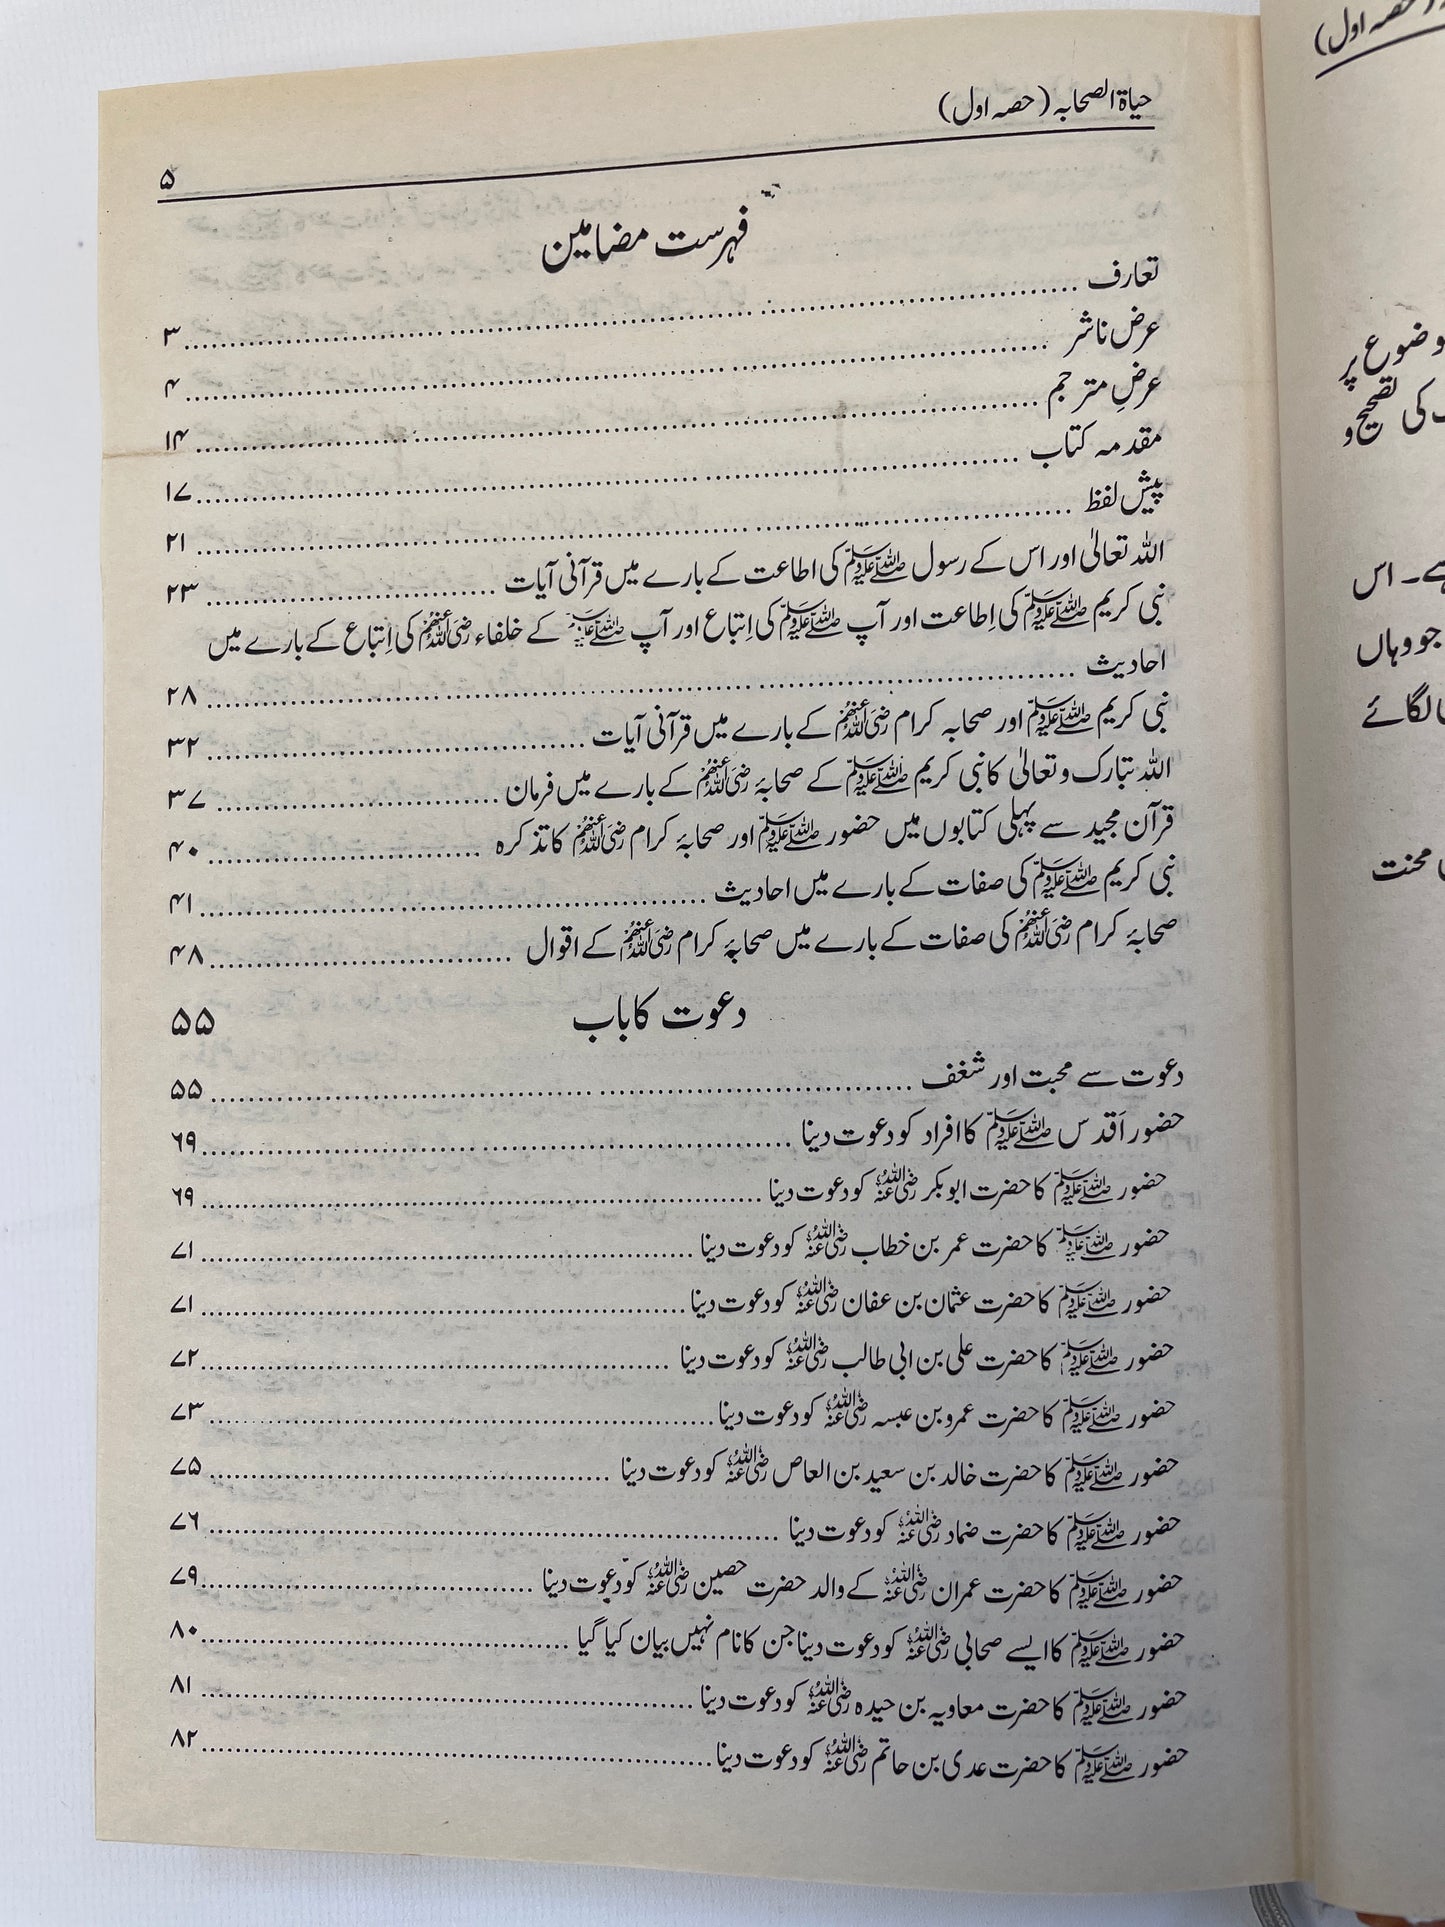 حیاۃ الصحابہ (حصہ اول)
۵
فہرست مضامین
تعارف ........ ۳
عرض ناشر ........ ۴
عرضِ مترجم ........ ۱۴
مقدمہ کتاب ........ ۱۷
پیش لفظ ........ ۲۱
اللہ تعالیٰ اور اس کے رسول ﷺ کی اطاعت کے بارے میں قرآنی آیات ........ ۲۳
نبی کریم ﷺ کی اِطاعت اور آپ ﷺ کی اِتباع اور آپ ﷺ کے خلفاء رضی اللہ عنہم کی اِتباع کے بارے میں
احادیث ........ ۲۸
نبی کریم ﷺ اور صحابہ کرام رضی اللہ عنہم کے بارے میں قرآنی آیات ........ ۳۲
اللہ تبارک و تعالیٰ کا نبی کریم ﷺ کے صحابۂ رضی اللہ عنہم کے بارے میں فرمان ........ ۳۷
قرآن مجید سے پہلی کتابوں میں حضور ﷺ اور صحابۂ کرام رضی اللہ عنہم کا تذکرہ ........ ۴۰
نبی کریم ﷺ کی صفات کے بارے میں احادیث ........ ۴۱
صحابۂ کرام رضی اللہ عنہم کی صفات کے بارے میں صحابۂ کرام رضی اللہ عنہم کے اقوال ........ ۴۸
دعوت کا باب ۵۵
دعوت سے محبت اور شغف ........ ۵۵
حضور اَقدس ﷺ کا افراد کو دعوت دینا ........ ۶۹
حضور ﷺ کا حضرت ابوبکر رضی اللہ عنہ کو دعوت دینا ........ ۶۹
حضور ﷺ کا حضرت عمر بن خطاب رضی اللہ عنہ کو دعوت دینا ........ ۷۱
حضور ﷺ کا حضرت عثمان بن عفان رضی اللہ عنہ کو دعوت دینا ........ ۷۱
حضور ﷺ کا حضرت علی بن ابی طالب رضی اللہ عنہ کو دعوت دینا ........ ۷۲
حضور ﷺ کا حضرت عمرو بن عبسہ رضی اللہ عنہ کو دعوت دینا ........ ۷۳
حضور ﷺ کا حضرت خالد بن سعید بن العاص رضی اللہ عنہ کو دعوت دینا ........ ۷۵
حضور ﷺ کا حضرت ضماد رضی اللہ عنہ کو دعوت دینا ........ ۷۶
حضور ﷺ کا حضرت عمران رضی اللہ عنہ کے والد حضرت حصین رضی اللہ عنہ کو دعوت دینا ........ ۷۹
حضور ﷺ کا ایسے صحابی رضی اللہ عنہ کو دعوت دینا جن کا نام نہیں بیان کیا گیا ........ ۸۰
حضور ﷺ کا حضرت معاویہ بن حیدہ رضی اللہ عنہ کو دعوت دینا ........ ۸۱
حضور ﷺ کا حضرت عدی بن حاتم رضی اللہ عنہ کو دعوت دینا ........ ۸۲
حصہ اول)
وضوع پر
کی تصحیح و
ہے۔ اس
جو وہاں
لگائے
محنت